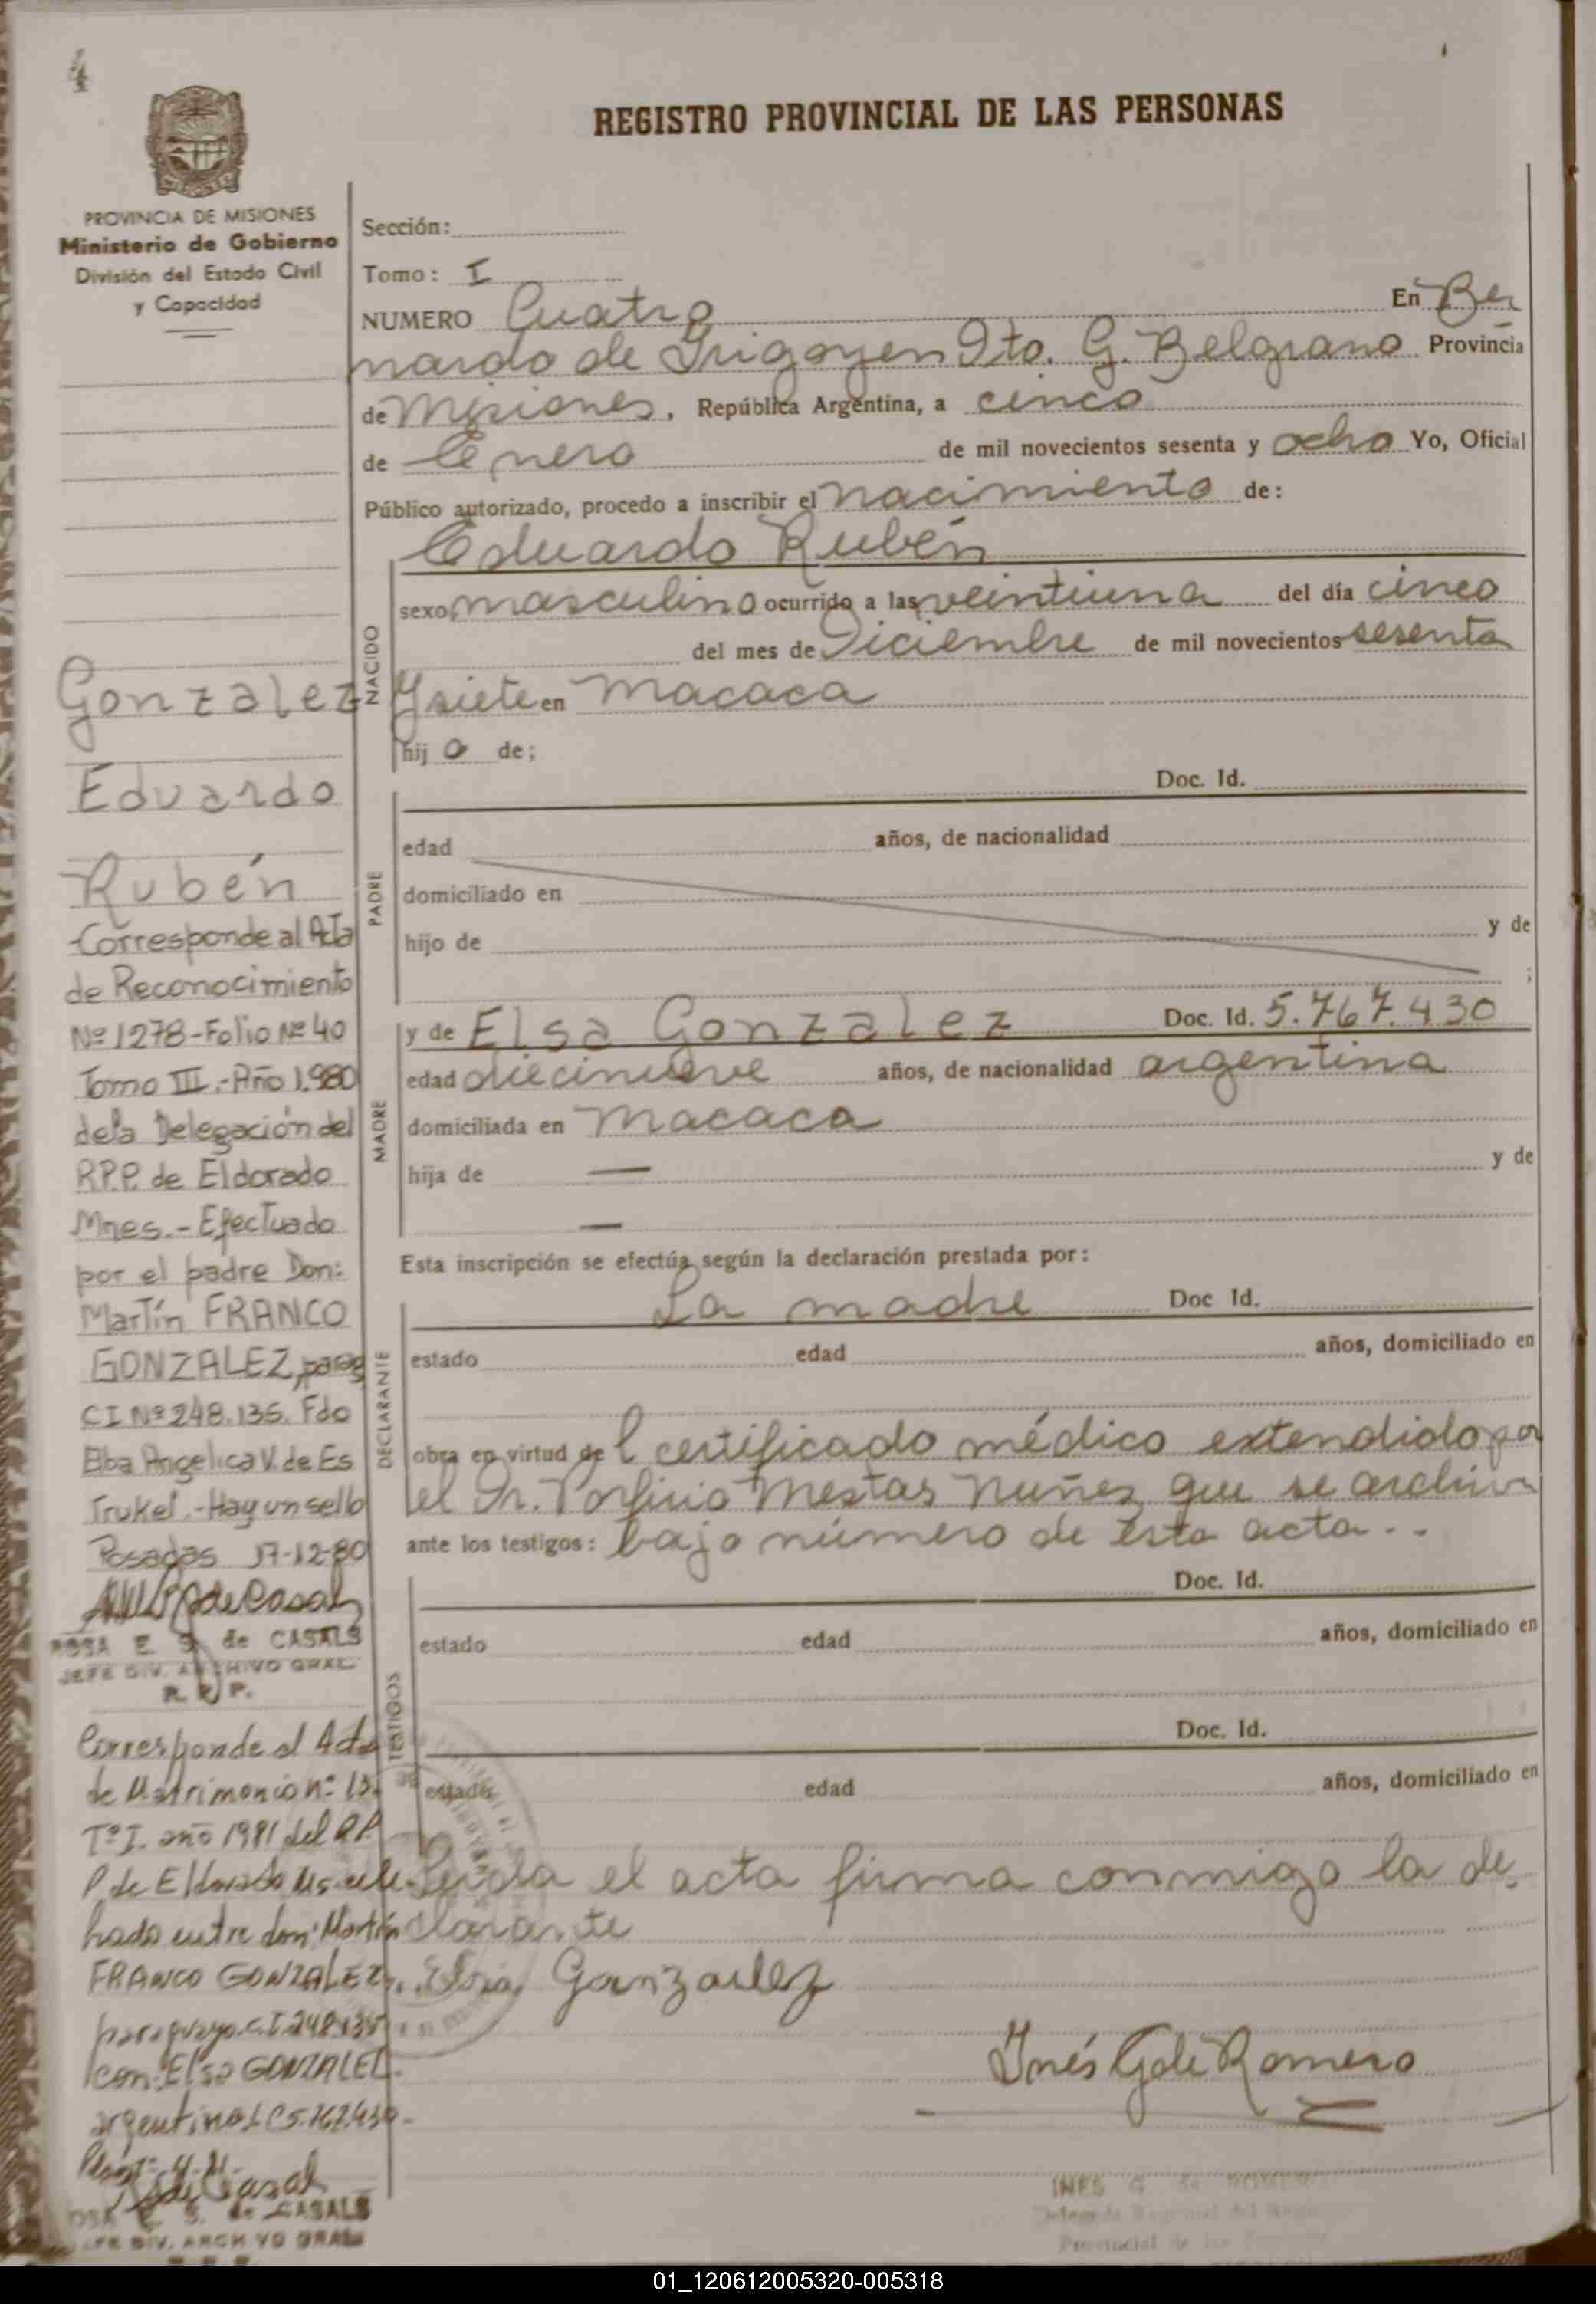 4
REGISTRO PROVINCIAL DE LAS PERSONAS
PROVINCIA DE MISIONES
Ministerio de Gobierno
División del Estado Civil
y Capacidad
Gonzalez
Eduardo
Rubén
Corresponde al Acta
de Reconocimiento
Nº 1278-Folio Nº 40
Tomo III.-Año 1.980
de la Delegación del
R.P.P. de Eldorado
Mnes.- Efectuado
por el padre Don:
Martín FRANCO
GONZALEZ, parag
CI Nº 248.135. Fdo
Elba Angelica V. de Es
Trukel.-Hay un sello
Posadas 17-12-80
ROSA E. S. de CASALS
JEFE DIV. ARCHIVO GRAL.
R. P. P.
Corresponde al Acta
de Matrimonio nº 13
Tº I. año 1981 del R.P.
P. de Eldorado Ms. cele
brado entre don: Martín
FRANCO GONZALEZ,
paraguayo C.I. 248.135
con: Elsa GONZALEZ
argentina L.C 5.767.430-
OSA E. S. de CASALS
JEFE DIV. ARCHIVO GRAL.
Sección:
Tomo: I
NUMERO Cuatro En Ber
nardo de Irigoyen Dto. G. Belgrano Provincia
de Misiones, República Argentina, a cinco
de Enero de mil novecientos sesenta y ocho Yo, Oficial
Público autorizado, procedo a inscribir el nacimiento de:
Eduardo Rubén
NACIDO
sexo masculino ocurrido a las veintiuna del día cinco
del mes de Diciembre de mil novecientos sesenta
y siete en Macaca
hij o de;
PADRE
Doc. Id.
edad años, de nacionalidad
domiciliado en
hijo de y de
;
MADRE
y de Elsa Gonzalez Doc. Id. 5.767.430
edad diecinueve años, de nacionalidad argentina
domiciliada en Macaca
hija de — y de
—
Esta inscripción se efectúa según la declaración prestada por:
DECLARANTE
La madre Doc Id.
estado edad años, domiciliado en
obra en virtud de l certificado médico extendido por
el Dr. Porfirio Mestas Nuñez que se archiva
ante los testigos: bajo número de esta acta..
TESTIGOS
Doc. Id.
estado edad años, domiciliado en
Doc. Id.
estado edad años, domiciliado en
Leida el acta firma conmigo la de
clarante
Elsa Gonzalez
Inés G de Romero
INES G. de ROMERO
Provincial de las
01_120612005320-005318